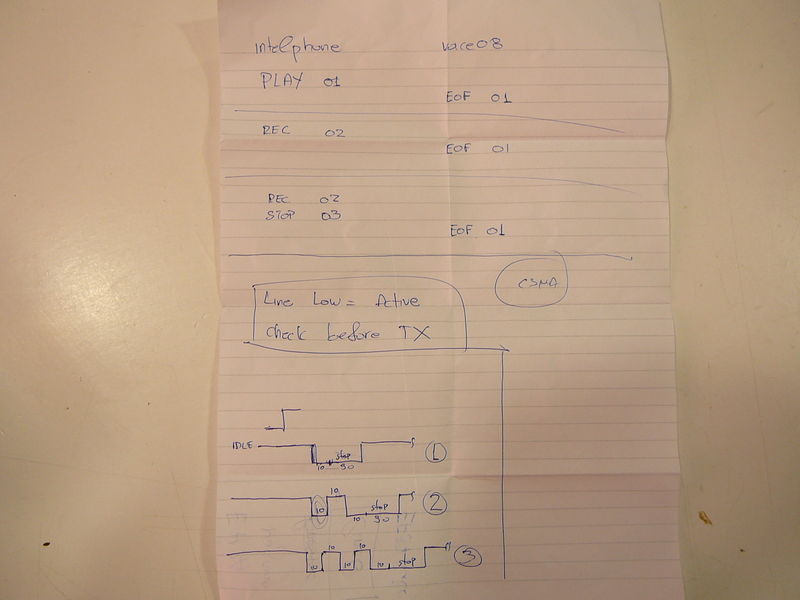 Intelphone
vace08
PLAY 01
EOF 01
REC 02
EOF 01
REC 02
STOP 03
EOF 01
CSMA
Line Low = Active
check before TX
IDLE
stop
10 90
1
10
10
stop
10 90
2
10 10
10 10 10 stop
3